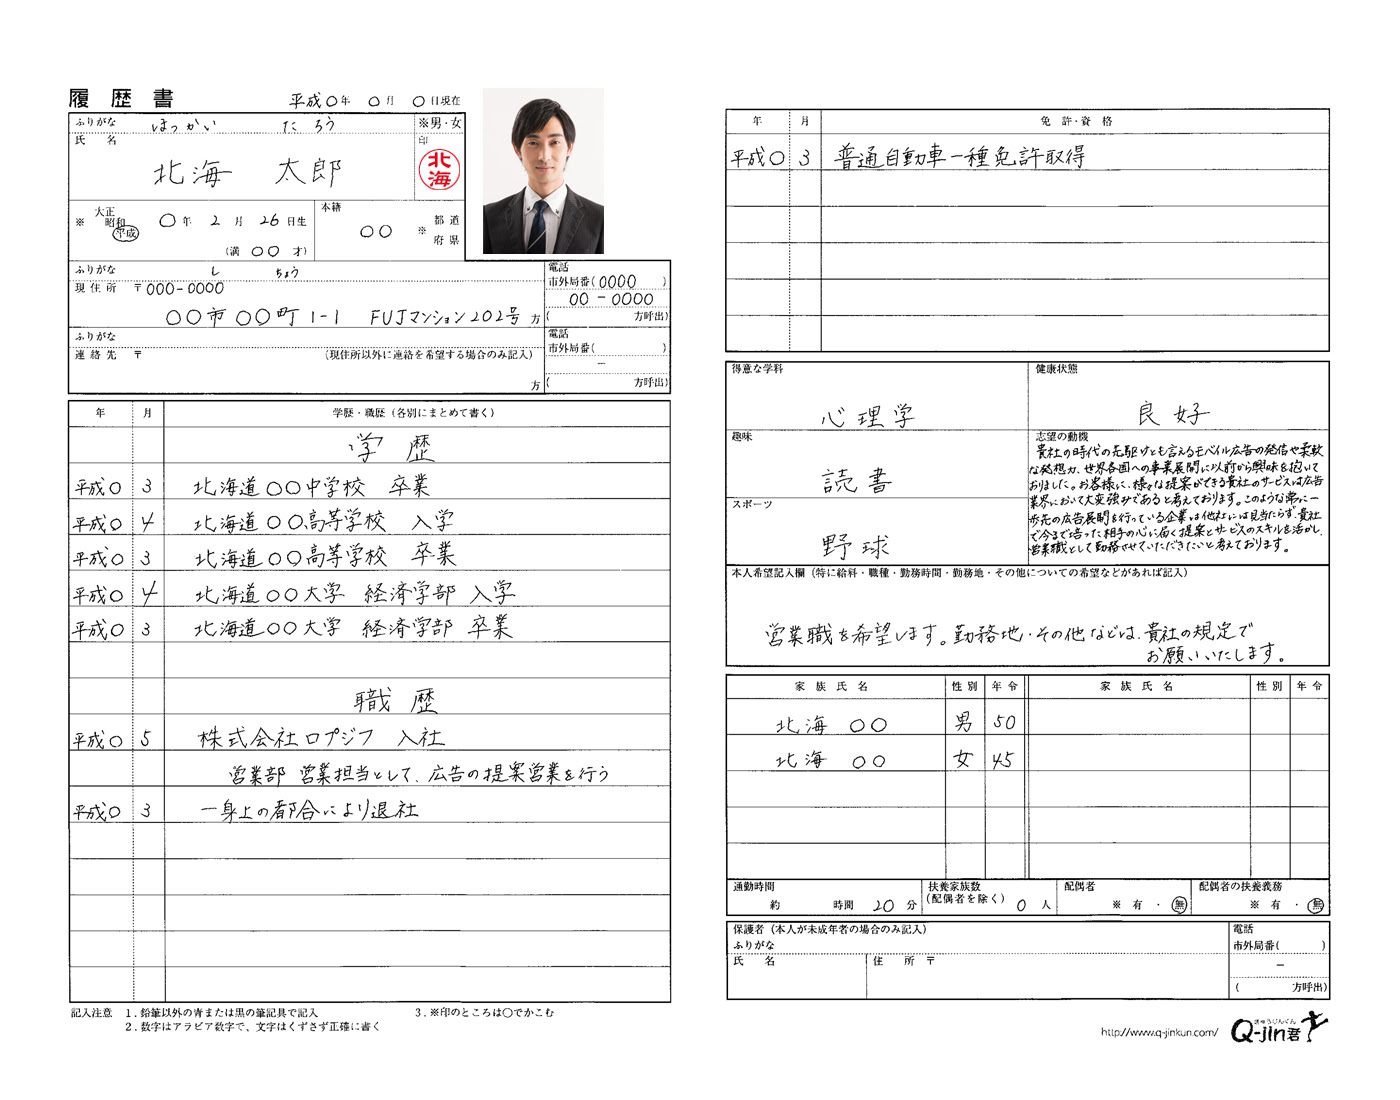 履歴書
平成○年 ○月 ○日現在
ふりがな ほっかい たろう
※男・女
氏 名
印
北海 太郎
北海
※ 大正 昭和 平成 ○年 2月 26日生
(満 ○○ 才)
本籍
○○ ※ 都 道 府 県
ふりがな し ちょう
現住所 〒000-0000
○○市○○町1-1 FUJマンション202号 方
電話
市外局番(0000 )
00-0000
( 方呼出)
ふりがな
連絡先 〒 (現住所以外に連絡を希望する場合のみ記入)
方
電話
市外局番( )
－
( 方呼出)
年 月 学歴・職歴(各別にまとめて書く)
学 歴
平成○ 3 北海道○○中学校 卒業
平成○ 4 北海道○○高等学校 入学
平成○ 3 北海道○○高等学校 卒業
平成○ 4 北海道○○大学 経済学部 入学
平成○ 3 北海道○○大学 経済学部 卒業
職 歴
平成○ 5 株式会社ロプジフ 入社
営業部 営業担当として、広告の提案営業を行う
平成○ 3 一身上の都合により退社
記入注意 1.鉛筆以外の青または黒の筆記具で記入 3.※印のところは○でかこむ
2.数字はアラビア数字で、文字はくずさず正確に書く
年 月 免許・資格
平成○ 3 普通自動車一種免許取得
得意な学科
心理学
健康状態
良好
趣味
読書
スポーツ
野球
志望の動機
貴社の時代の先駆けとも言えるモバイル広告の発信や柔軟
な発想力、世界各国への事業展開に以前から興味を抱いて
おりました。お客様に、様々な提案ができる貴社のサービスは広告
業界において大変強みであると考えております。このような常に一
歩先の広告展開を行っている企業は他社には見当たらず、貴社
で今まで培った相手の心に届く提案とサービスのスキルを活かし、
営業職として勤務させていただきたいと考えております。
本人希望記入欄(特に給料・職種・勤務時間・勤務地・その他についての希望などがあれば記入)
営業職を希望します。勤務地・その他などは、貴社の規定で
お願いいたします。
家族氏名 性別 年令 家族氏名 性別 年令
北海 ○○ 男 50
北海 ○○ 女 45
通勤時間
約 時間 20分
扶養家族数
(配偶者を除く) 0人
配偶者
※ 有・無
配偶者の扶養義務
※ 有・無
保護者(本人が未成年者の場合のみ記入)
ふりがな
氏 名 住 所 〒
電話
市外局番( )
－
( 方呼出)
http://www.q-jinkun.com/
きゅうじんくん
Q-jin君